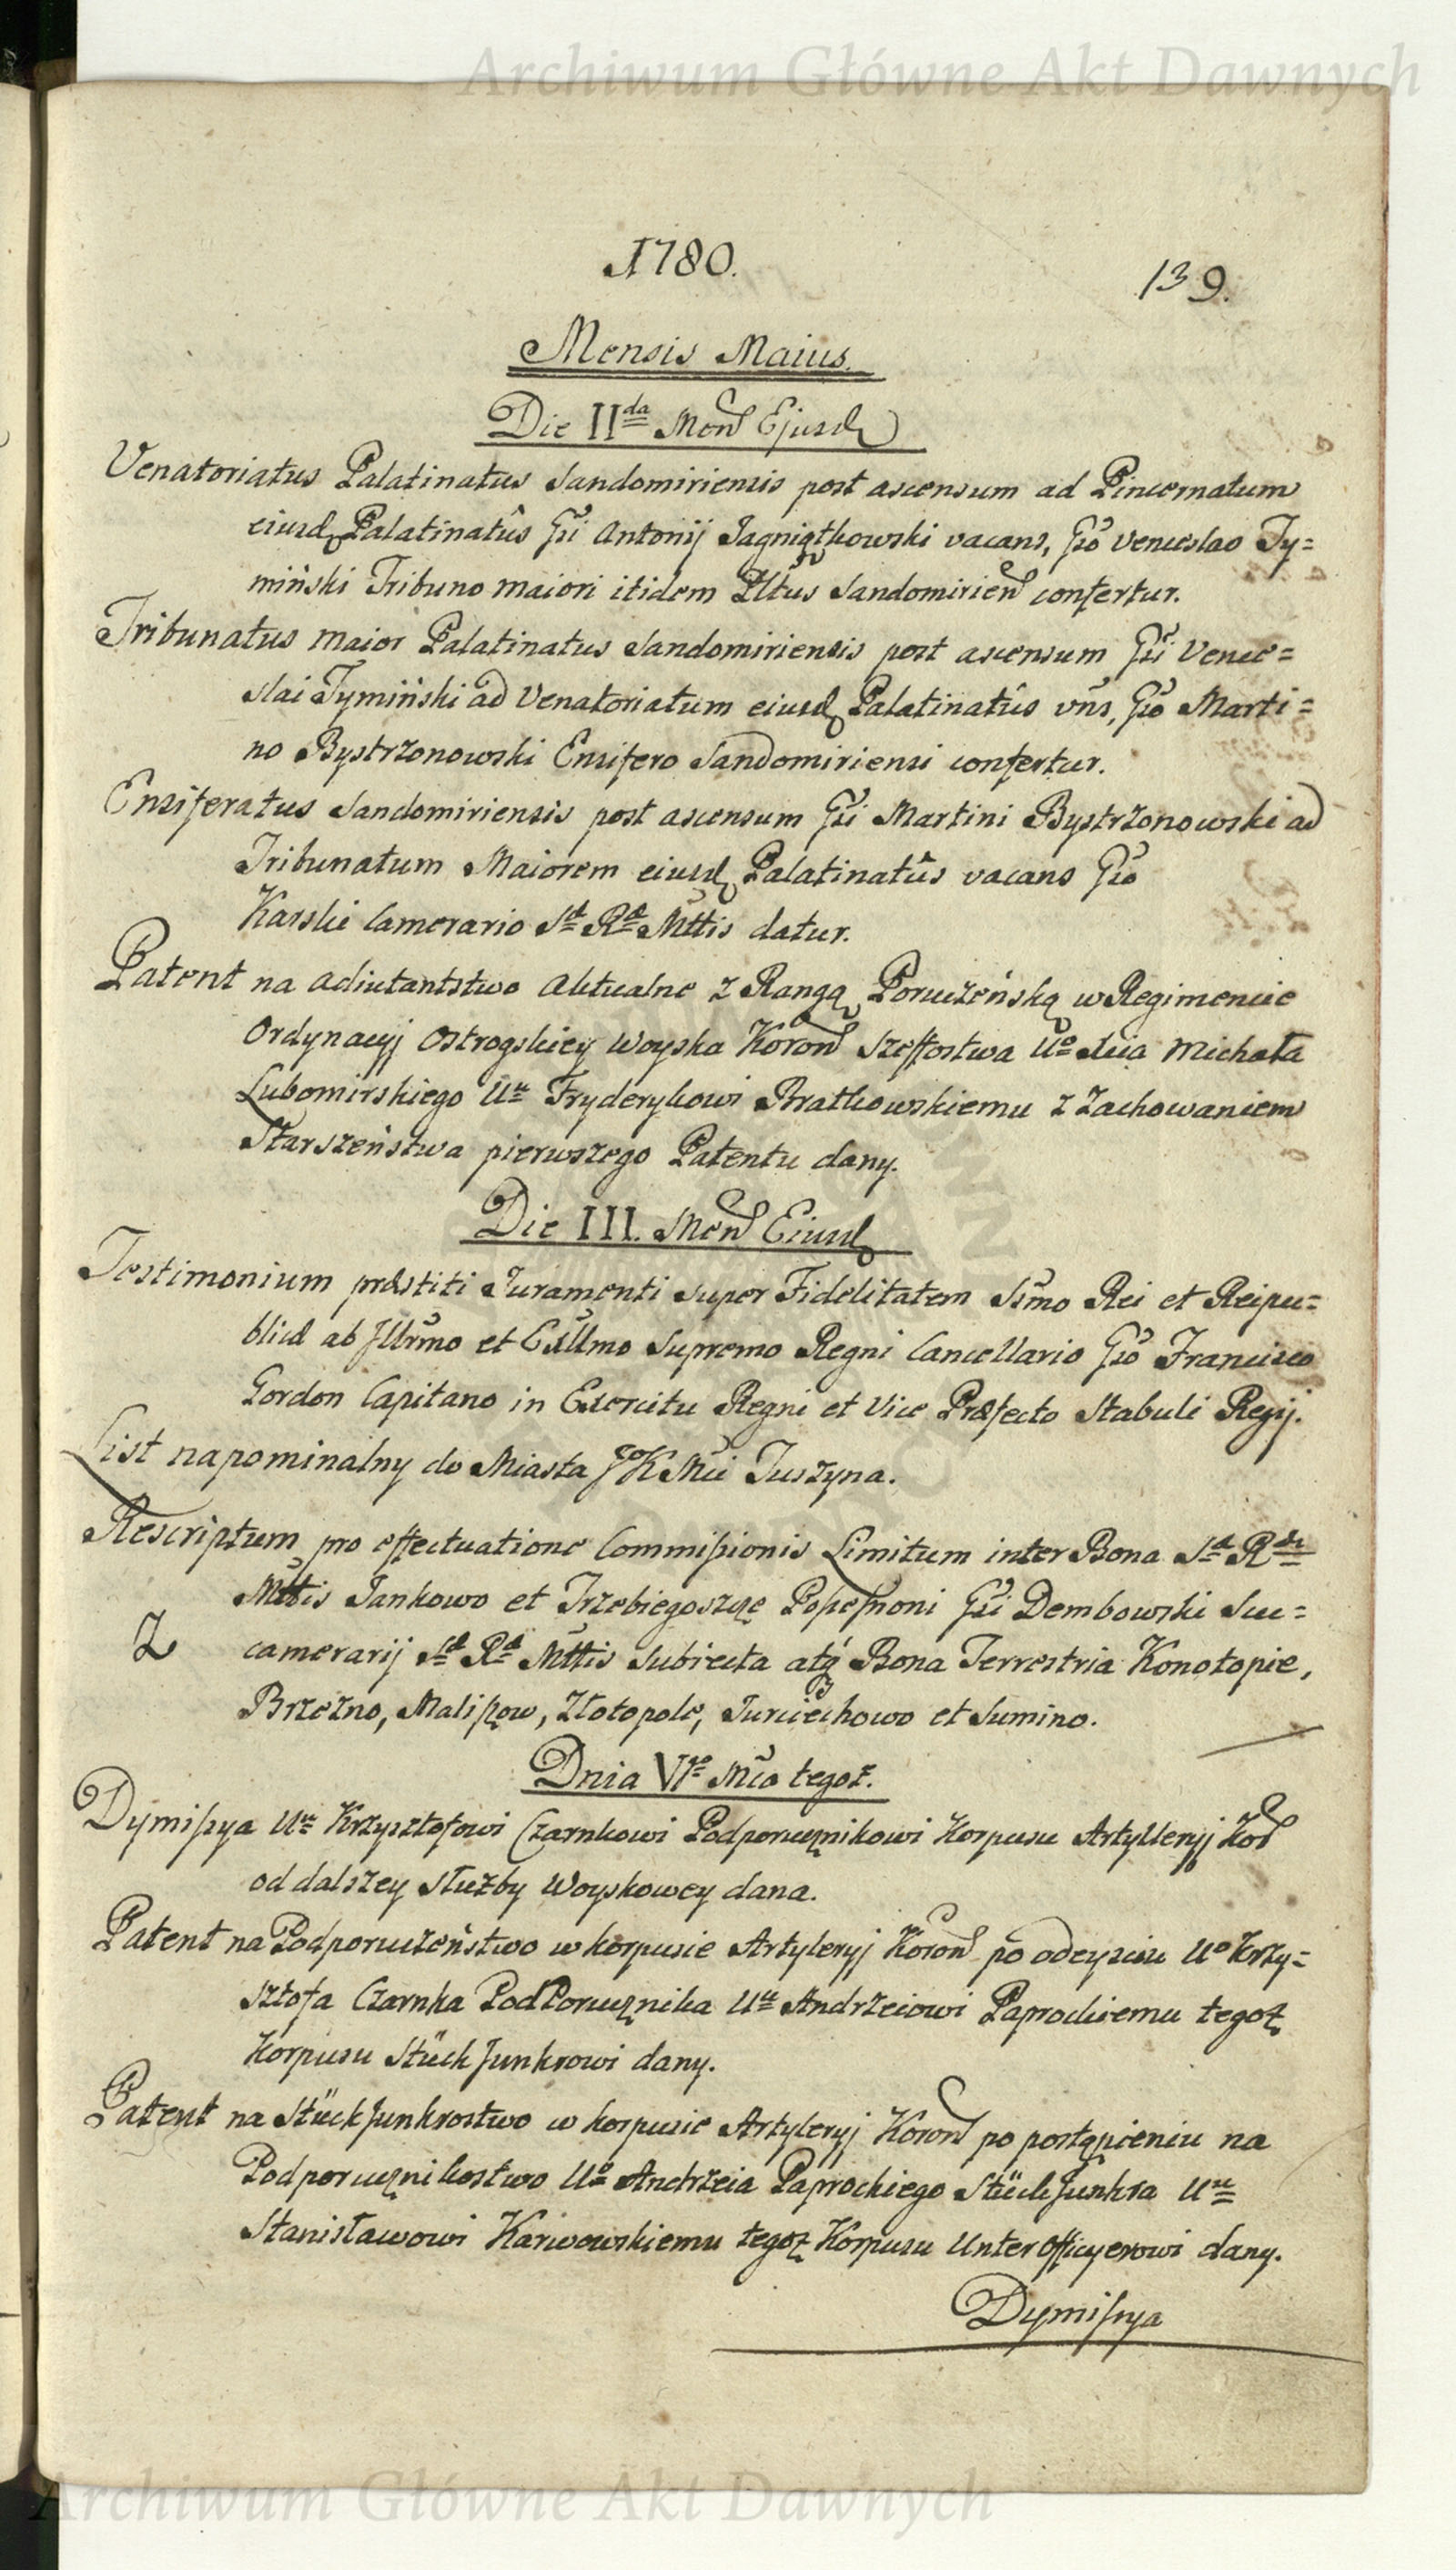 Archiwum Główne Akt Dawnych
1780.
139.
Mensis Maius.
Die II da Men Ejusd
Venatoriatus Palatinatus Sandomiriensis post ascensum ad Pincernatum
eiusd Palatinatûs Gsi Antonij Jagniątkowski vacans, Gso Venceslao Ty=
miński Tribuno maiori itidem Pltus Sandomirien confertur.
Tribunatus maior Palatinatus Sandomiriensis post ascensum Gsi Vence=
slai Tymiński ad Venatoriatum eiusd Palatinatûs vns, Gso Marti=
no Bystrzonowski Ensifero Sandomiriensi confertur.
Ensiferatus Sandomiriensis post ascensum Gsi Martini Bystrzonowski ad
Tribunatum Maiorem eiusd Palatinatûs vacans Gso
Karski Camerario Sæ Ræ Mttis datur.
Patent na Adiutantstwo Aktualne z Rangą Poruczeńską w Regimencie
Ordynacyj Ostrogskiey Woyska Koron Szeffostwa Uo Xcia Michała
Lubomirskiego Uu Fryderykowi Bratkowskiemu z zachowaniem
Starszeństwa pierwszego Patentu dany.
Die III. Men Eiusd
Testimonium præstiti Juramenti super Fidelitatem Ssmo Rei et Reipu=
blicæ ab Illrmo et Exllmo Supremo Regni Cancellario Gso Francisco
Gordon Capitano in Exercitu Regni et Vice Præfecto Stabuli Regij.
List napominalny do Miasta JoKMci Tuszyna.
Rescriptum pro effectuatione Commissionis Limitum inter Bona Sæ Ræ
Mttis Jankowo et Trzebiegoszcz Possessioni Gsi Dembowski Suc=
Z
camerarij Sæ Ræ Mttis Subiecta atq Bona Terrestria Konotopie,
Brzezno, Maliszow, Złotopole, Turciechowo et Sumino.
Dnia VIgo Mca tegoż.
Dymissya Uu Krzysztofowi Czarnkowi Podporucznikowi Korpusu Artylleryj Kor
od dalszey służby Woyskowey dana.
Patent na Podporuczeństwo w korpusie Artyleryj Koron po odeyściu Uo Krzy=
sztofa Czarnka PodPorucznika Uu Andrzeiowi Paprockiemu tegoż
Korpusu Stück Junkrowi dany.
Patent na Stück Junkrostwo w korpusie Artyleryj Koron po postąpieniu na
Podporucznikostwo Uo Andrzeia Paprockiego Stück Junkra Uu
Stanisławowi Karwowskiemu tegoż Korpusu Unter Officyerowi dany.
Dymissya
Archiwum Główne Akt Dawnych